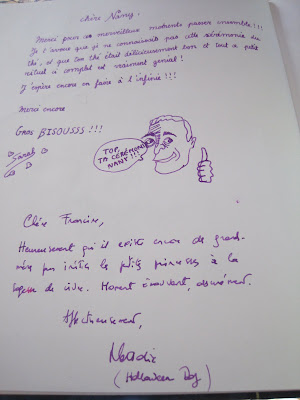 Chère Nany,
Merci pour ces merveilleux moments passer ensemble !!!
Je t'avoue que je ne connaissais pas cette cérémonie du
thé, et que ton thé était délicieusement bon et tout ce petit
rituel si complet est vraiment génial !
J'espère encore en faire à l'infinie !!!
Merci encore
Gros BISOUSSS !!!
Sarah
TOP,
TA CÉRÉMONIE
NANY !!!
Chère Francine,
Heureusement qu'il existe encore de grand-
mère pour initier les petites princesses à la
sagesse de vivre. Moment émouvant, assurément.
Affectueusement,
Nadie
(Halloween Day)